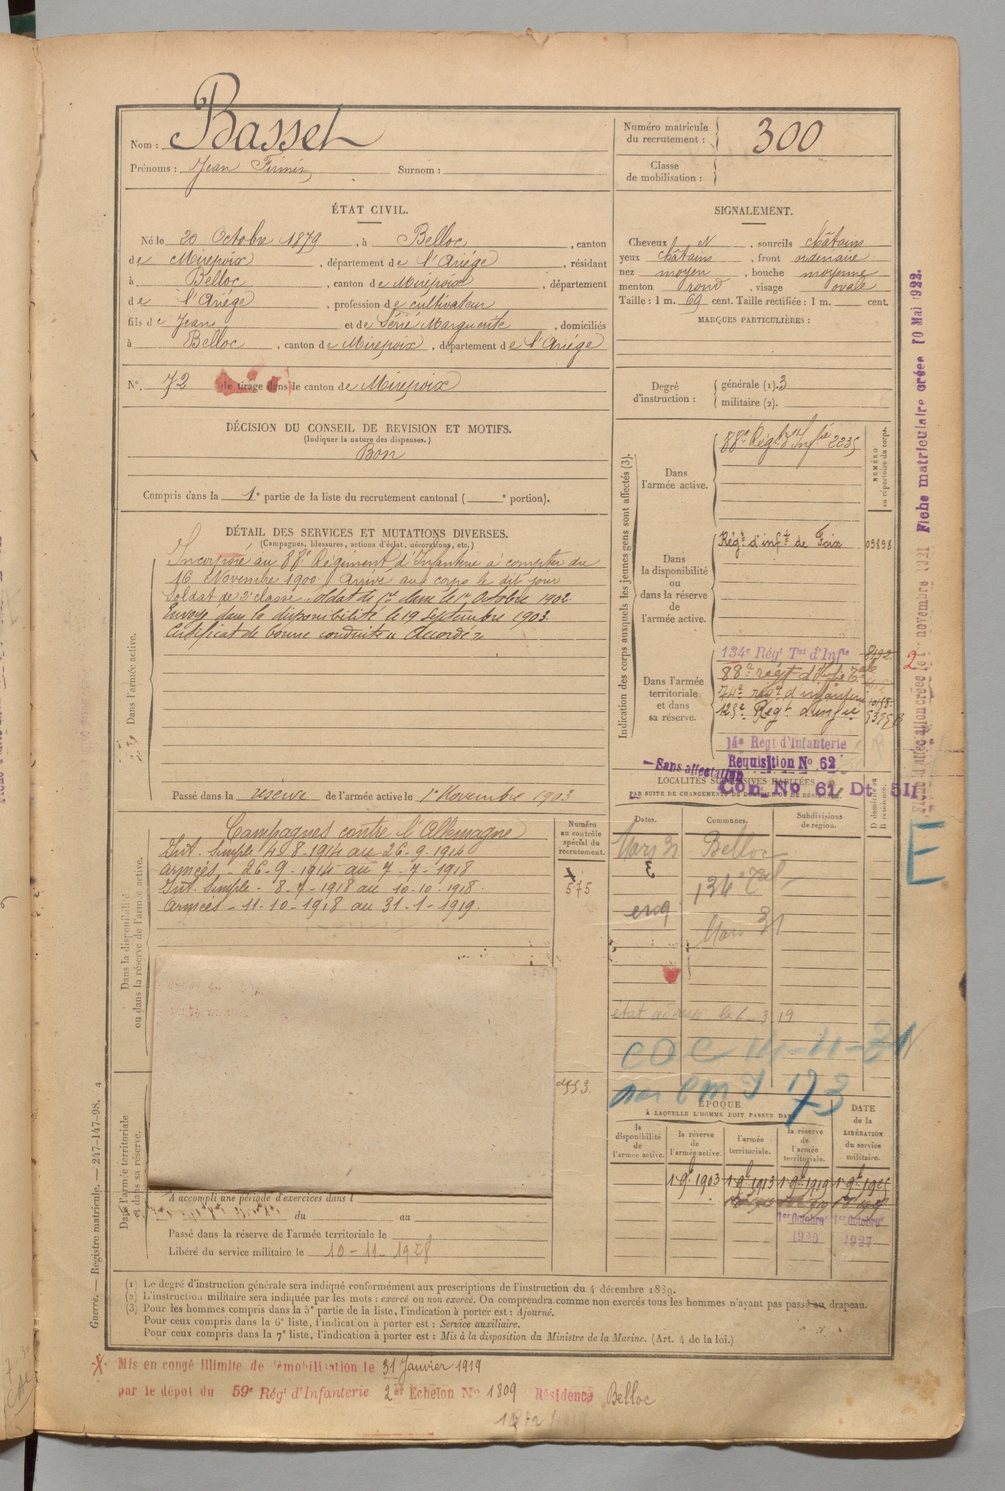 Nom : Basset
Prénoms : Jean Firmin Surnom :
Numéro matricule du recrutement : 300
Classe de mobilisation :
ÉTAT CIVIL.
Né le 20 Octobre 1879, à Belloc, canton
de Mirepoix, département de l'Ariège, résidant
à Belloc, canton de Mirepoix, département
de l'Ariège, profession de cultivateur
fils de Jean et de Serié Marguerite, domiciliés
à Belloc, canton de Mirepoix, département de l'Ariège
N° 72 de tirage dans le canton de Mirepoix
SIGNALEMENT.
Cheveux N, sourcils châtains
yeux châtains, front ordinaire
nez moyen, bouche moyenne
menton rond, visage ovale
Taille : 1 m. 69 cent. Taille rectifiée : 1 m. cent.
MARQUES PARTICULIÈRES :
Degré d'instruction : générale (1). 3
militaire (2).
DÉCISION DU CONSEIL DE REVISION ET MOTIFS.
(Indiquer la nature des dispenses.)
Bon
Compris dans la 1e partie de la liste du recrutement cantonal ( e portion).
DÉTAIL DES SERVICES ET MUTATIONS DIVERSES.
(Campagnes, blessures, actions d'éclat, décorations, etc.)
Dans l'armée active.
Incorporé au 88e Régiment d'Infanterie à compter du
16 Novembre 1900. Arrivé au corps le dit jour
Soldat de 2e classe. Soldat de 1re classe le 1er Octobre 1902.
Envoyé dans la disponibilité le 19 septembre 1903.
Certificat de bonne conduite "Accordé"
Passé dans la réserve de l'armée active le 1er Novembre 1903
Indication des corps auxquels les jeunes gens sont affectés (3).
NUMÉRO au répertoire du corps.
Dans l'armée active.
88e Régt d'Infie 2235
Dans la disponibilité ou dans la réserve de l'armée active.
Régt d'inft de Foix 03898
Dans l'armée territoriale et dans sa réserve.
134e Régt Tal d'Infie
88e régt d'Infie
74e régt d'infanterie
125e Régt d'infie
14e Regt d'Infanterie
Requisition No 62
Sans affectation
LOCALITÉS SUCCESSIVES HABITÉES
PAR SUITE DE CHANGEMENTS DE DOMICILE OU DE RÉSIDENCE.
Con. No 61. Dt 5II
Dates. Communes. Subdivisions de région. D domicile R résidence.
Mars 31 Belloc
134
Mars 31
Dans la disponibilité ou dans la réserve de l'armée active.
Numéro au contrôle spécial du recrutement.
Campagnes contre l'Allemagne
Int. Simple 4-8-1914 au 26-9-1914
Armées - 26-9-1914 au 7-7-1918
Int. Simple - 8-7-1918 au 10-10-1918.
Armées - 11-10-1918 au 31-1-1919.
575
Dans l'armée territoriale et dans sa réserve.
A accompli une période d'exercices dans l
du au
Passé dans la réserve de l'armée territoriale le
Libéré du service militaire le 10-11-1928
ÉPOQUE
À LAQUELLE L'HOMME DOIT PASSER DANS
la disponibilité de l'armée active.
la réserve de l'armée active.
l'armée territoriale.
la réserve de l'armée territoriale.
DATE de la LIBÉRATION du service militaire.
1 9bre 1903 1 9bre 1913 1 9bre 1919 1 9bre 1925
1er Octobre 1920 1er Octobre 1927
(1) Le degré d'instruction générale sera indiqué conformément aux prescriptions de l'instruction du 4 décembre 1889.
(2) L'instruction militaire sera indiquée par les mots : exercé ou non exercé. On comprendra comme non exercés tous les hommes n'ayant pas passé au drapeau.
(3) Pour les hommes compris dans la 5e partie de la liste, l'indication à porter est : Ajourné.
Pour ceux compris dans la 6e liste, l'indication à porter est : Service auxiliaire.
Pour ceux compris dans la 7e liste, l'indication à porter est : Mis à la disposition du Ministre de la Marine. (Art. 4 de la loi.)
Mis en congé illimité de démobilisation le 31 Janvier 1919
par le dépôt du 59e Régt d'Infanterie 2er Echelon No 1809 Résidence Belloc
Guerre. — Registre matricule. — 247-147-98.
Fiche matriculaire créée 10 Mai 1922.
E